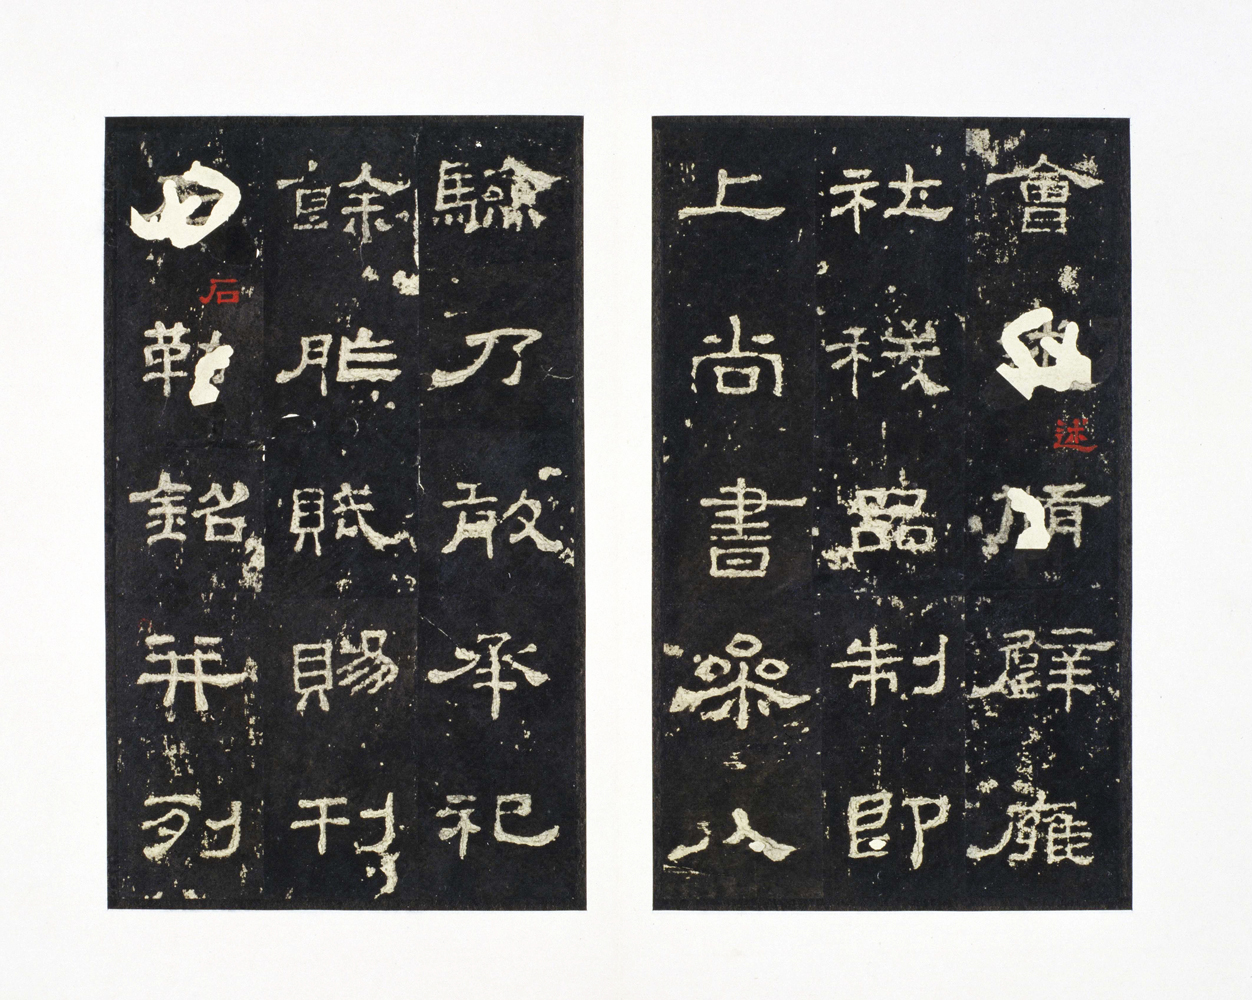 會述脩璧廱
社稷品制即
上尚書參以
驗乃敢承祀
餘胙賦賜刊
石勒銘并列